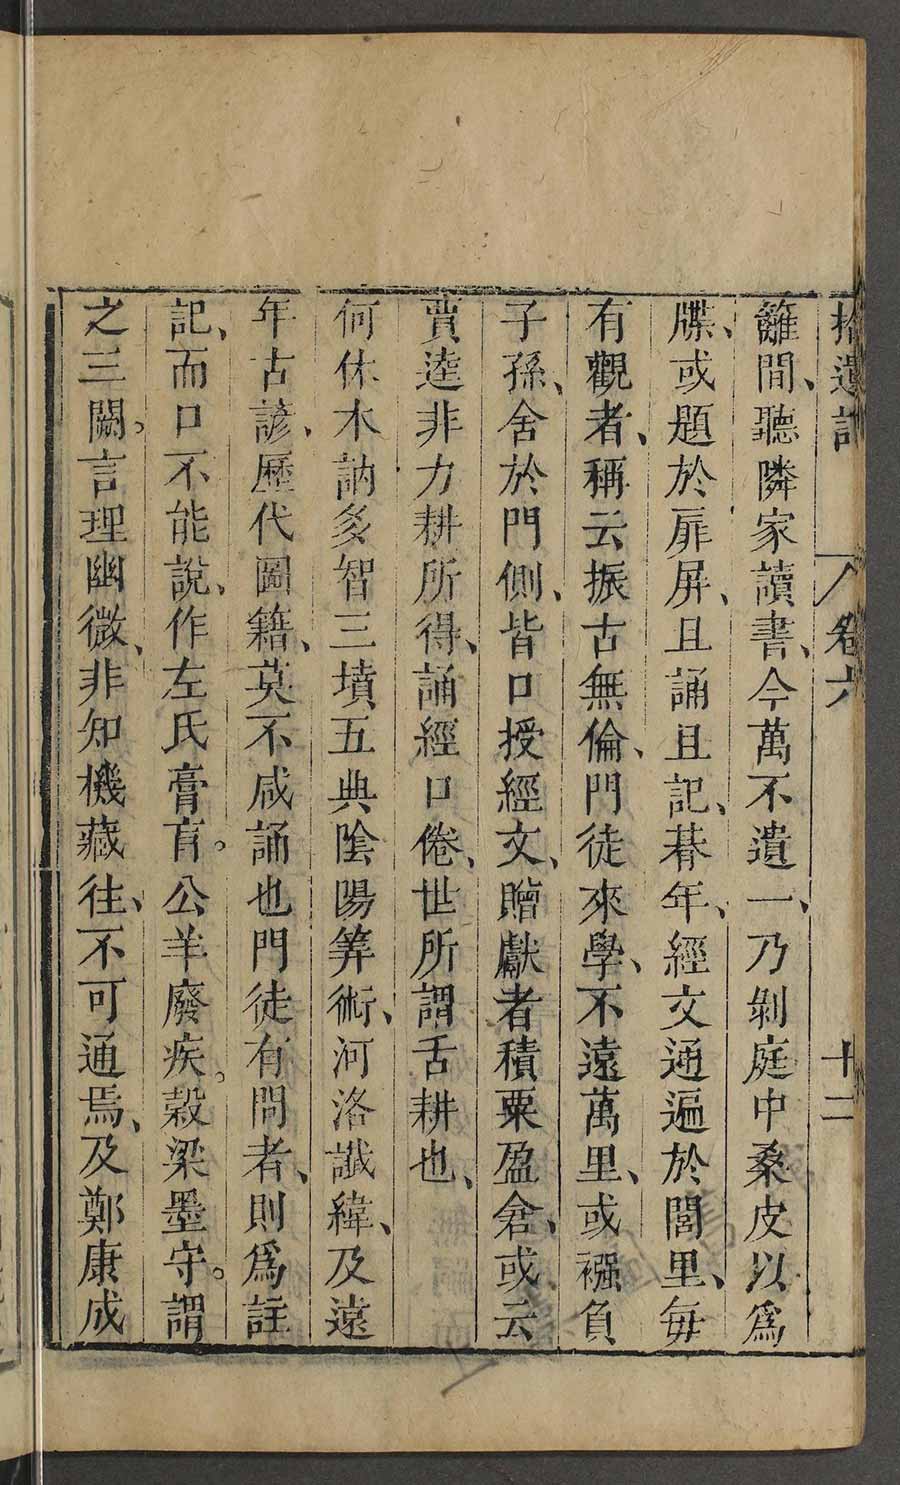 拾遺記 卷六 十二
籬間、聽隣家讀書、今萬不遺一、乃剝庭中桑皮以爲
牒、或題於扉屏、且誦且記、朞年、經文通遍於閭里、每
有觀者、稱云振古無倫、門徒來學、不遠萬里、或襁負
子孫、舍於門側、皆口授經文、贈獻者積粟盈倉、或云
賈逵非力耕所得、誦經口倦、世所謂舌耕也、
何休木訥多智三墳五典陰陽筭術、河洛讖緯、及遠
年古諺、歷代圖籍、莫不咸誦也門徒有問者、則爲註
記、而口不能說、作左氏膏肓。公羊廢疾。穀梁墨守。謂
之三闕。言理幽微、非知機藏往、不可通焉、及鄭康成